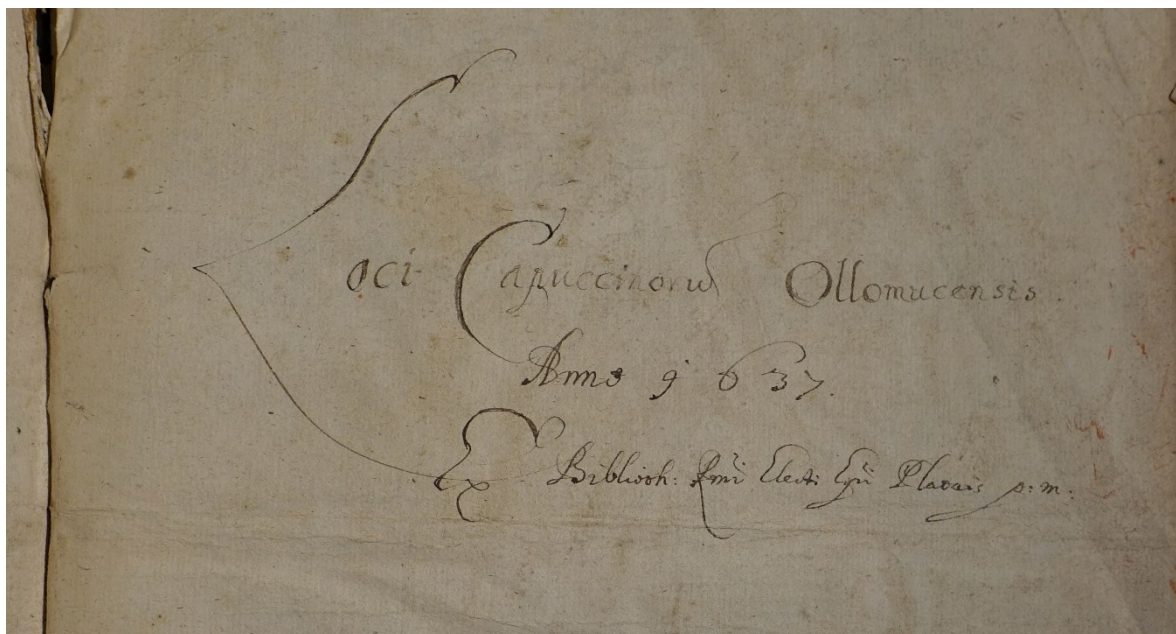 Loci Capuccinorū Ollomucensis.
Anno 1637.
Ex Biblioth: Rmi Elect: Epi Plauais p: m: